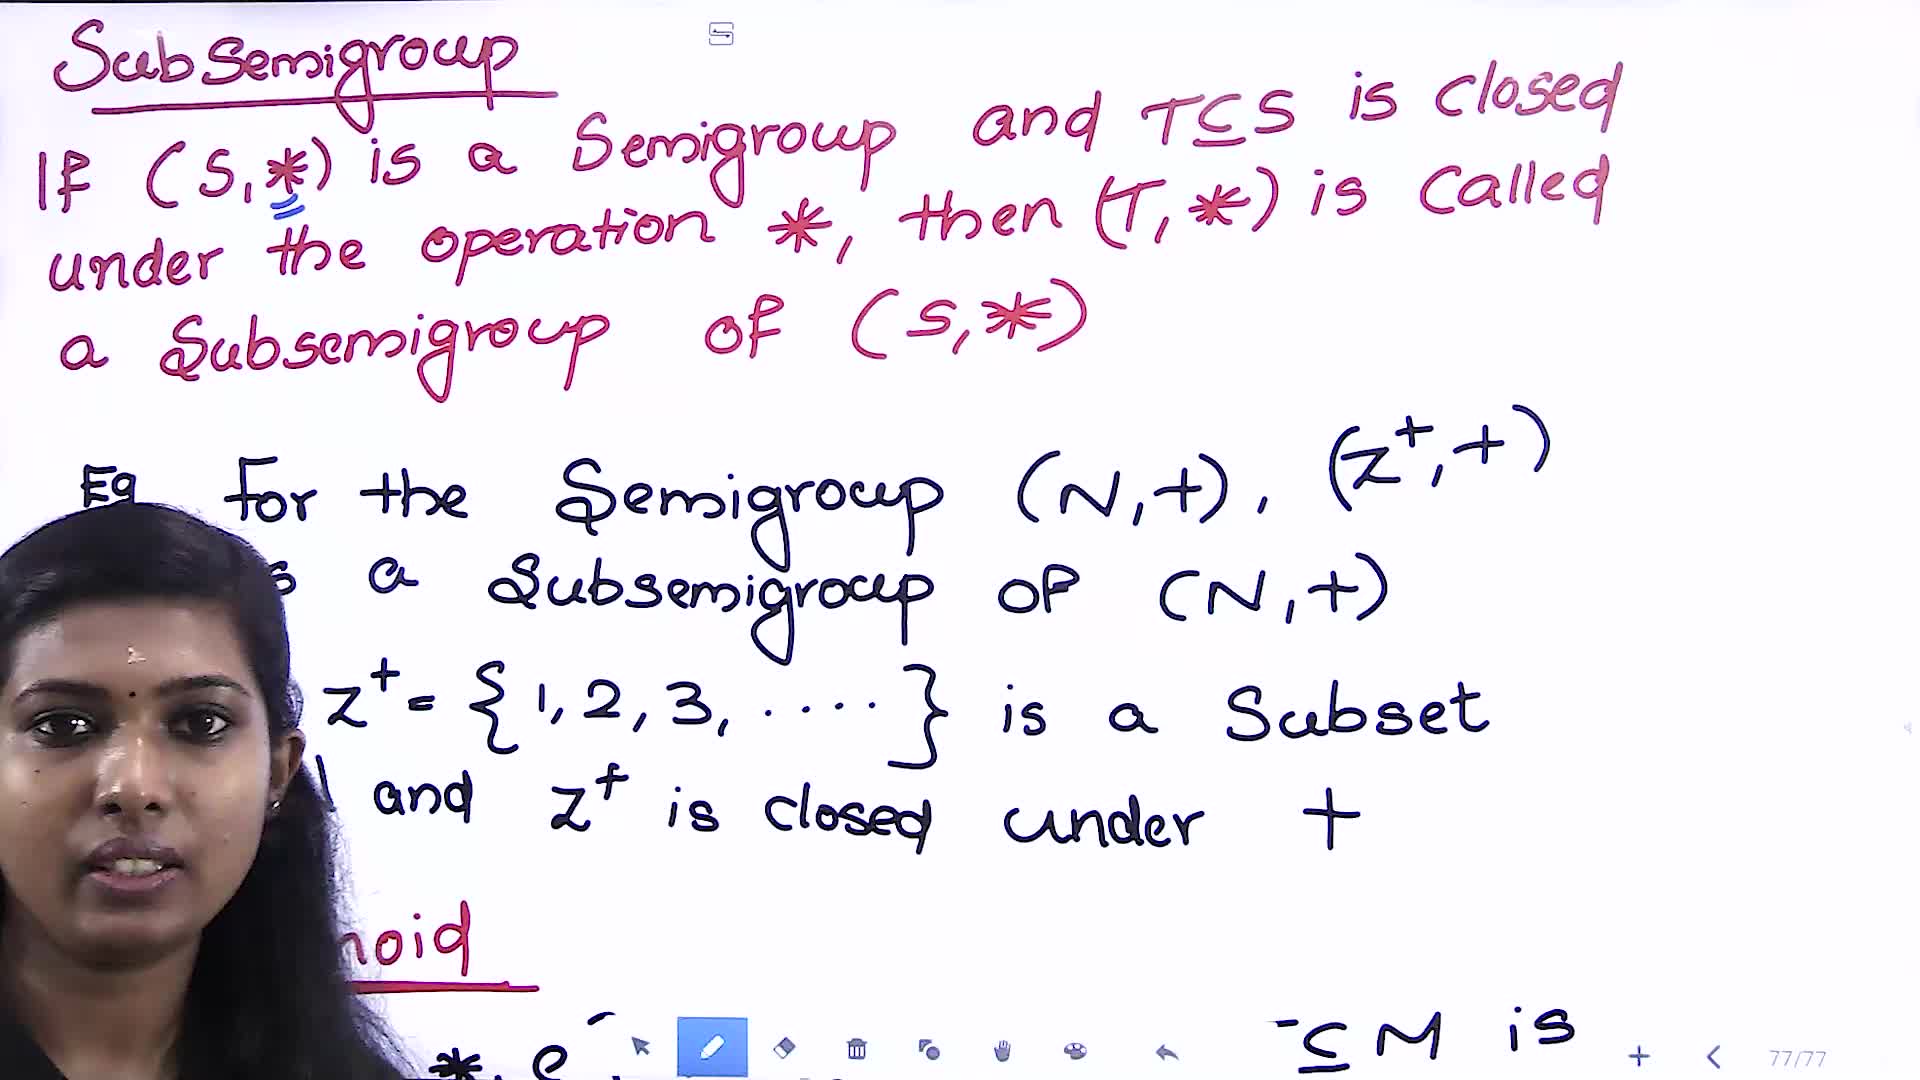 Subsemigroup
If (S,*) is a Semigroup and T⊆S is closed
under the operation *, then (T,*) is called
a Subsemigroup of (S,*)
Eg For the Semigroup (N,+), (Z⁺,+)
a Subsemigroup of (N,+)
Z⁺ = {1,2,3,....} is a Subset
and Z⁺ is closed under +
noid
*, e ⊆ M is
77/77